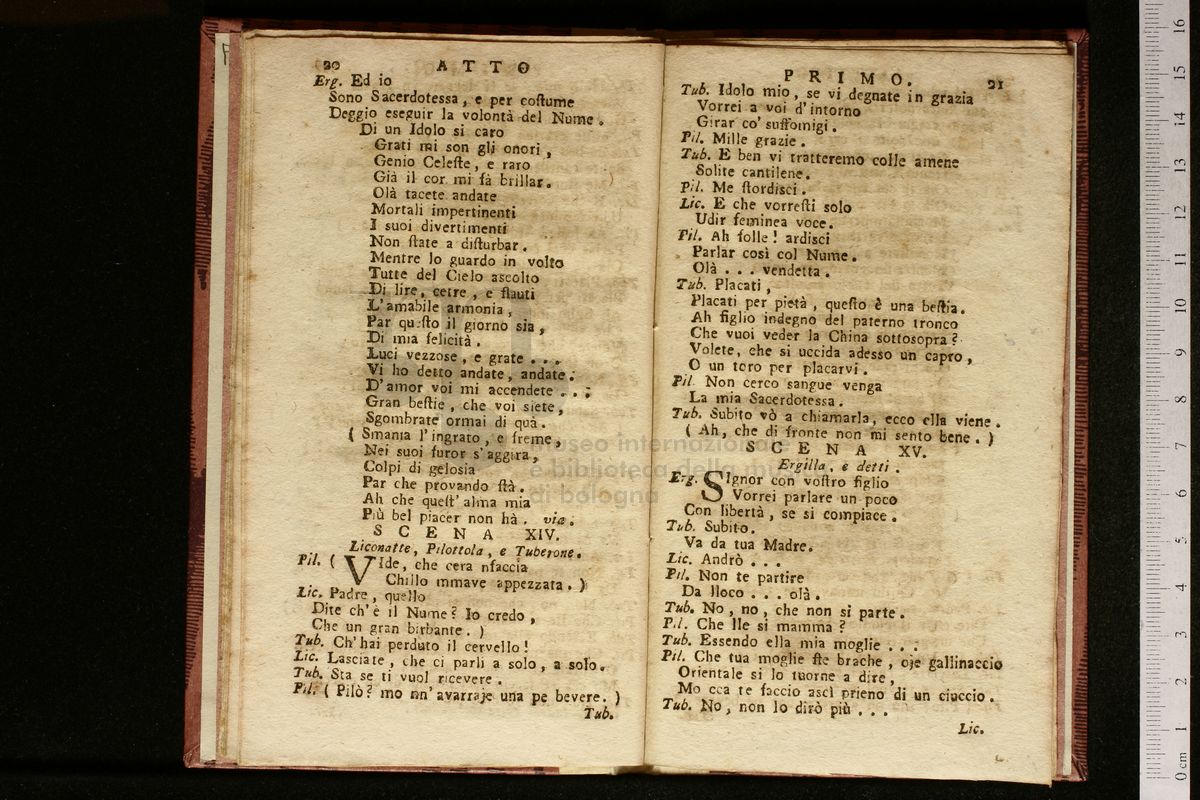 20 ATTO
Erg. Ed io
Sono Sacerdotessa, e per coſtume
Deggio eseguir la volontà del Nume.
Di un Idolo si caro
Grati mi son gli onori,
Genio Celeſte, e raro
Già il cor mi fà brillar.
Olà tacete andate
Mortali impertinenti
I suoi divertimenti
Non ſtate a diſturbar.
Mentre lo guardo in volto
Tutte del Cielo ascolto
Di lire, cetre, e flauti
L'amabile armonia,
Par queſto il giorno sia,
Di mia felicità.
Luci vezzose, e grate ...
Vi ho detto andate, andate:
D'amor voi mi accendete ...;
Gran beſtie, che voi siete,
Sgombrate ormai di quà.
( Smania l'ingrato, e freme,
Nei suoi furor s'aggira,
Colpi di gelosia
Par che provando ſtà.
Ah che queſt' alma mia
Più bel piacer non hà. via.
SCENA XIV.
Liconatte, Pilottola, e Tuberone.
Pil. ( VIde, che cera nfaccia
Chillo mmave appezzata. )
Lic. Padre, quello
Dite ch'è il Nume? Io credo,
Che un gran birbante. )
Tub. Ch'hai perduto il cervello!
Lic. Lasciate, che ci parli a solo, a solo.
Tub. Sta se ti vuol ricevere.
Pil. ( Pilò? mo mn'avarraje una pe bevere. )
Tub.
PRIMO. 21
Tub. Idolo mio, se vi degnate in grazia
Vorrei a voi d'intorno
Girar co' suffomigi.
Pil. Mille grazie.
Tub. E ben vi tratteremo colle amene
Solite cantilene.
Pil. Me ſtordisci.
Lic. E che vorreſti solo
Udir feminea voce.
Pil. Ah folle! ardisci
Parlar così col Nume.
Olà ... vendetta.
Tub. Placati,
Placati per pietà, queſto è una beſtia.
Ah figlio indegno del paterno tronco
Che vuoi veder la China sottosopra?
Volete, che si uccida adesso un capro,
O un toro per placarvi.
Pil. Non cerco sangue venga
La mia Sacerdotessa.
Tub. Subito vò a chiamarla, ecco ella viene.
( Ah, che di fronte non mi sento bene. )
SCENA XV.
Ergilla, e detti.
Erg. SIgnor con voſtro figlio
Vorrei parlare un poco
Con libertà, se si compiace.
Tub. Subito.
Va da tua Madre.
Lic. Andrò ...
Pil. Non te partire
Da lloco ... olà.
Tub. No, no, che non si parte.
Pil. Che lle si mamma?
Tub. Essendo ella mia moglie ...
Pil. Che tua moglie ſte brache, oje gallinaccio
Orientale si lo tuorne a dire,
Mo cca te faccio ascì prieno di un ciuccio.
Tub. No, non lo dirò più ...
Lic.
museo internazionale
e biblioteca della musica
di bologna